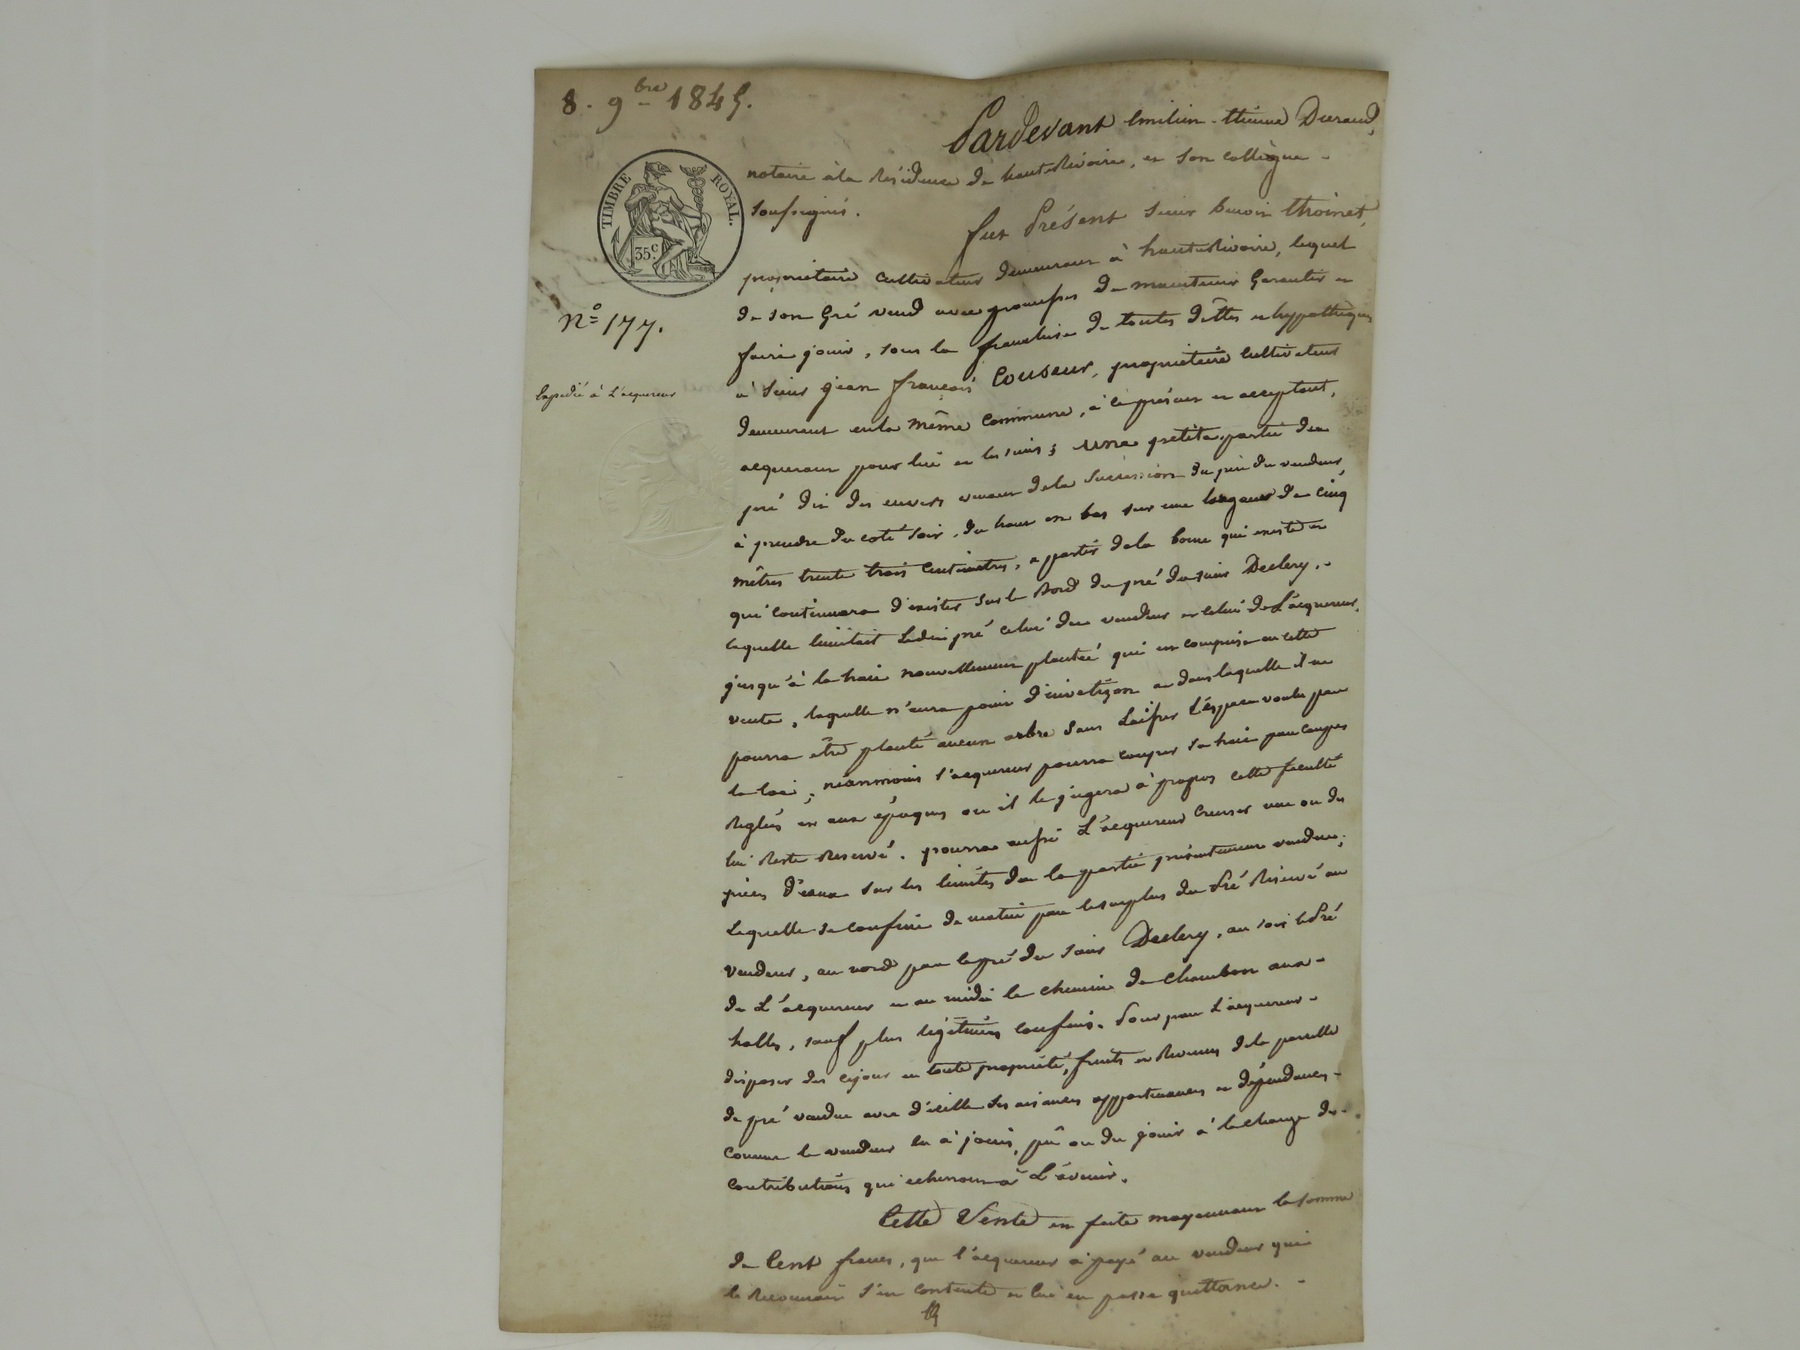 8. 9bre 1845.
Pardevant Emilien-Etienne Durand,
notaire à la Résidence de hauteRivoire, et son collègue -
soussignés.
TIMBRE ROYAL.
35c.
fut Présent sieur benoit thoinet,
propriétaire cultivateur demeurant à hauteRivoire, lequel
No 177.
de son Gré vend avec promesses de maintenir Garantir et
faire jouir, sous la franchise de toutes dêttes et hypothèques
Expédié à l'acquereur
à sieur jean françois Couseur, propriétaire cultivateur
demeurant en la même commune, à ce présent et acceptant,
acquerant pour lui et les siens ; une petite partie du
pré dit des envers venant de la succession du père du vendeur,
à prendre du coté soir, du haut en bas sur une largeur de cinq
mêtres trente trois centimètres, a partir de la borne qui existe et
qui continuera d'exister sur le bord du pré du sieur Declery, -
laquelle limitait ledit pré celui du vendeur et celui de L'acquereur,
jusqu'à la haie nouvellement plantée qui est comprise en cette
vente, laquelle n'aura point d'invetizon et dans laquelle il ne
pourra être planté aucun arbre sans Laisser L'éspace voulu par
la loi ; néanmoins l'acquereur pourra couper sa haie par coupes
Reglées et aux époques ou il le jugera à propos cette faculté
lui Reste Reservée. pourra aussi L'acquereur creuser une ou des
pièces d'eaux sur les limites de la partie présentement vendue ;
Laquelle se confine de matin par le surplus du Pré Réservé au
vendeur, au nord par le pré du sieur Declery, au soir le Pré
de L'acquereur et au midi le chemin de chambon aux -
halles, sauf plus légitimes confins. Pour par L'acquereur -
disposer dès cejour en toute propriété, fruits et Revenus de la parcelle
de pré vendue avec d'icelle ses aisances appartenances et dépendances -
comme le vendeur en à joui, pû ou du jouir à la charge des -
contributions qui écherront à L'avenir.
Cette Vente est faite moyennant la somme
de Cent francs, que l'acquereur à payé au vendeur qui
le Reconnait s'en contente et lui en passe quittance. -